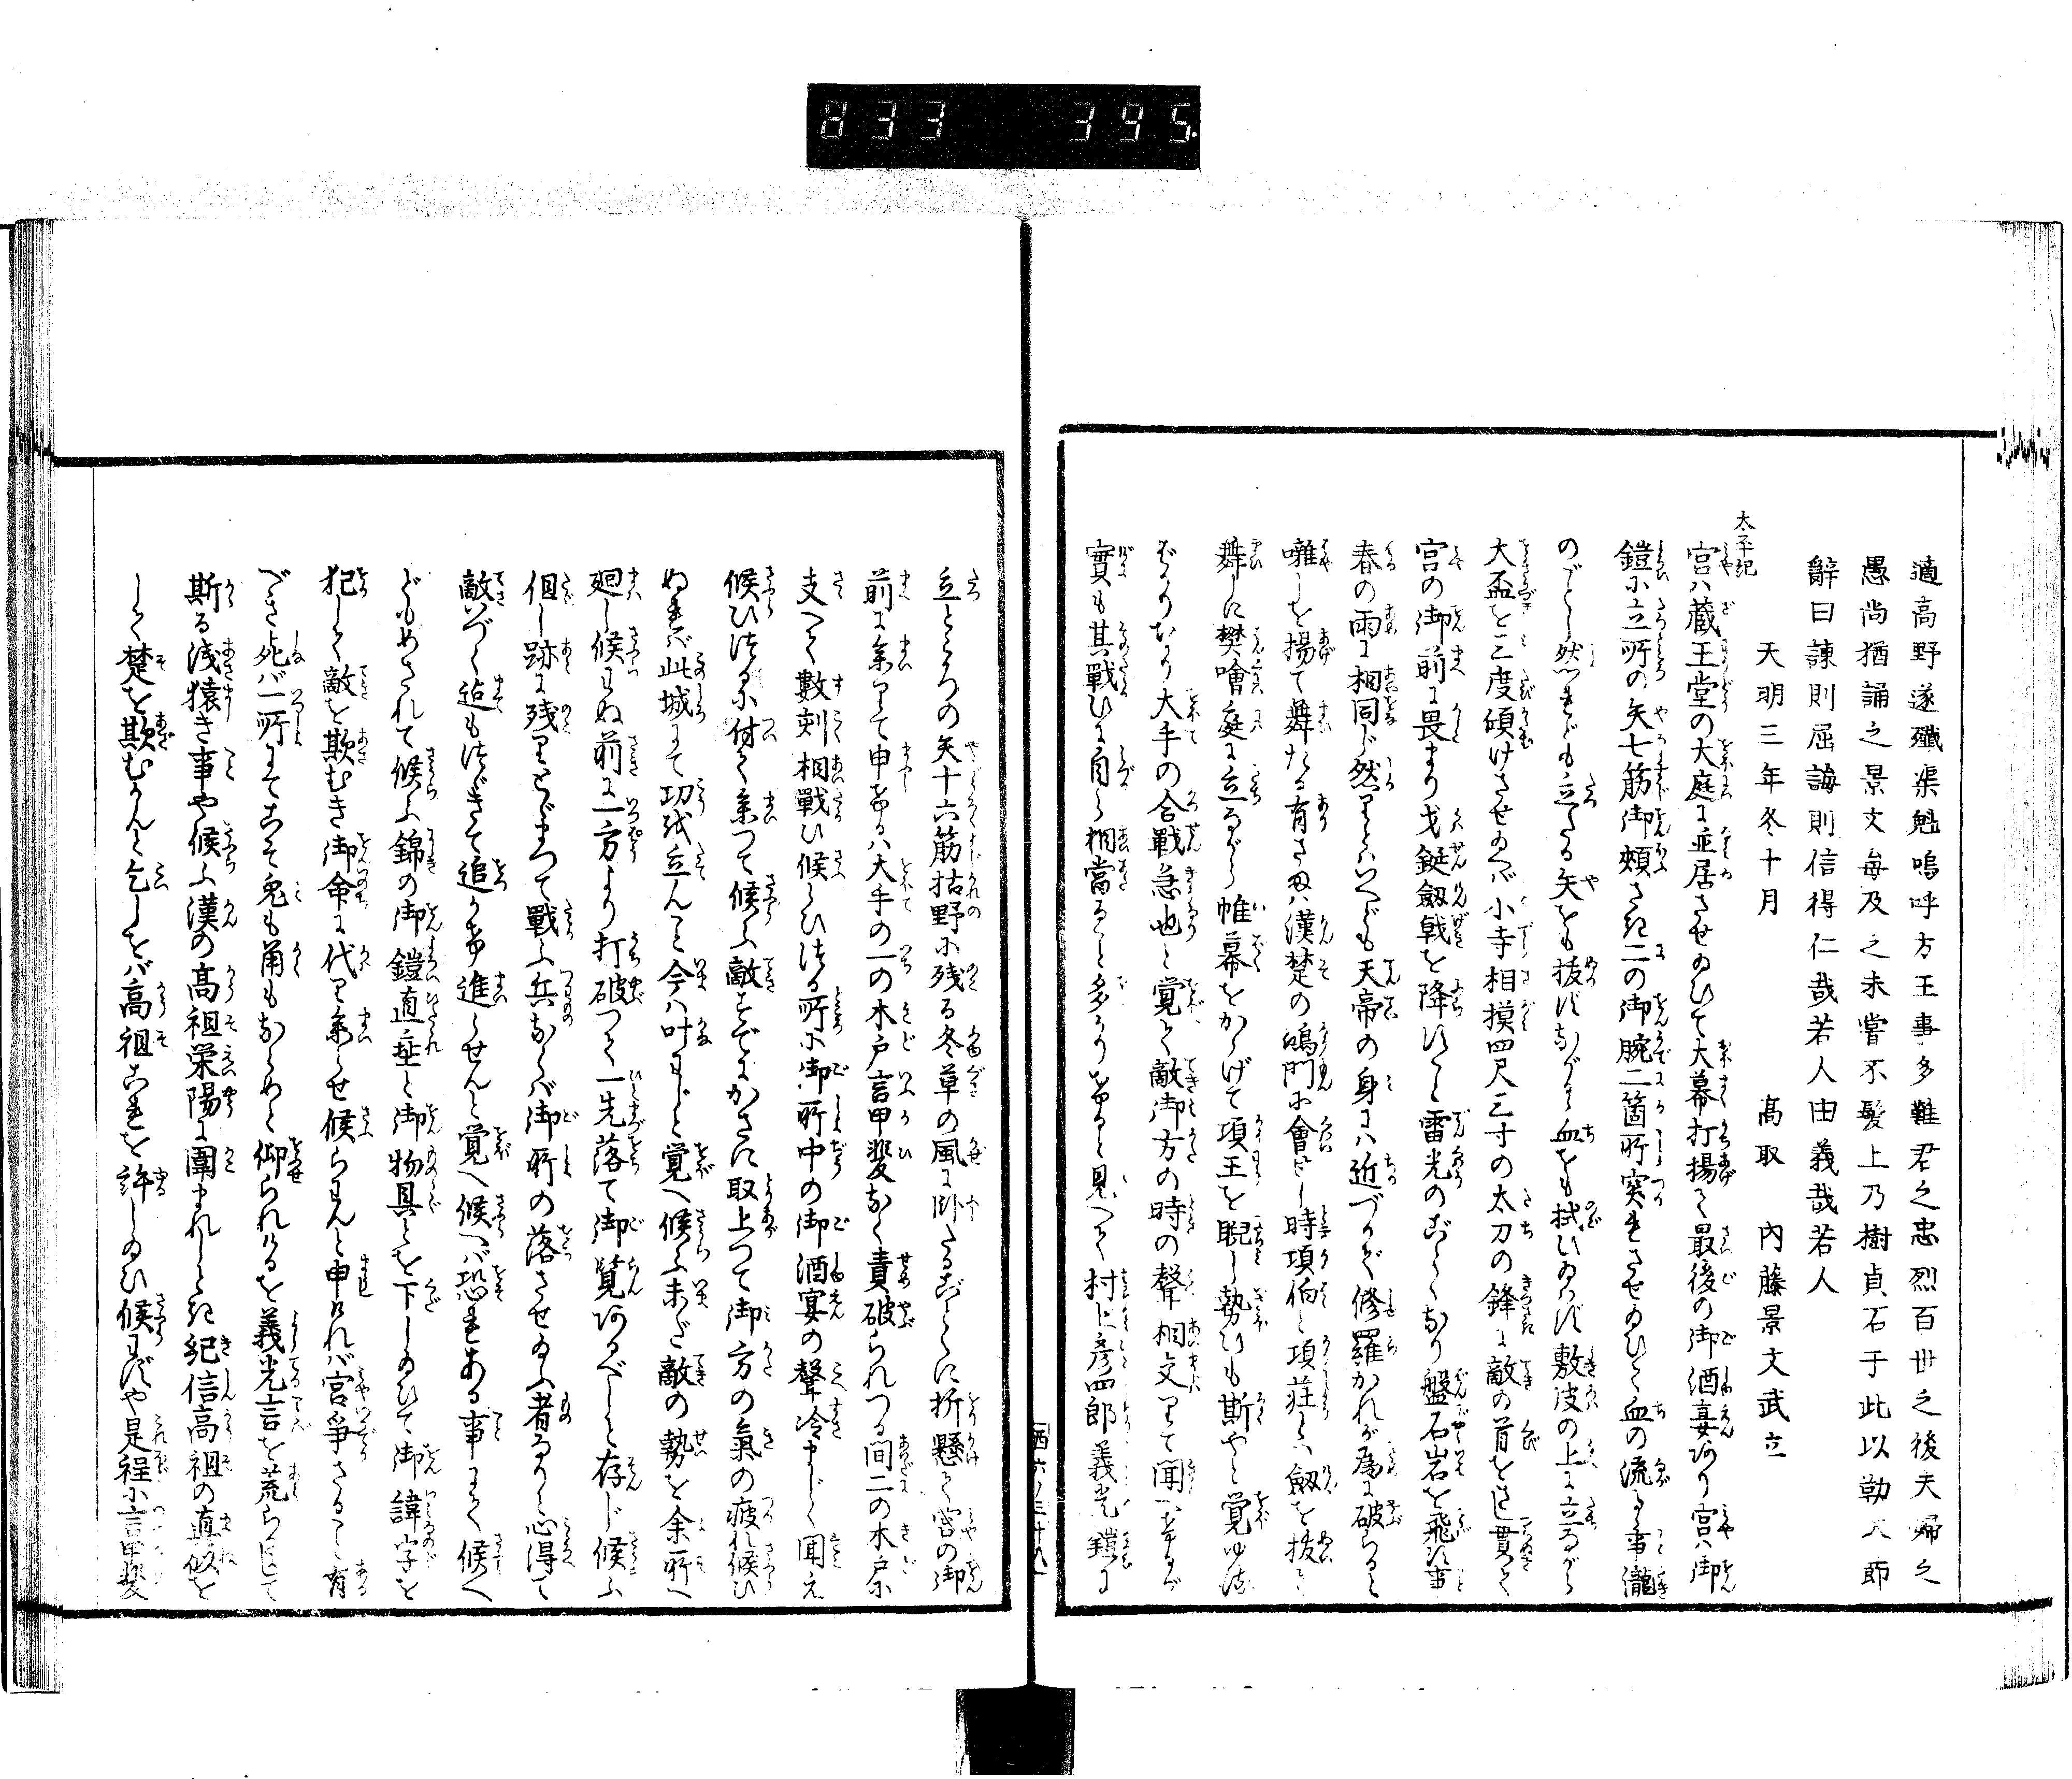 833 395.
適高野遂殲渠魁嗚呼方王事多難君之忠烈百世之後夫婦之
愚尚猶誦之景文毎及之未嘗不髪上乃樹貞石于此以勒大節
辭曰諌則屈誨則信得仁哉若人由義哉若人
天明三年冬十月 高取 内藤景文武立
太平記
宮ハ蔵王堂の大庭に並居させ給ひて大幕打揚て最後の御酒宴あり宮ハ御
鎧に立所の矢七筋御頬さき二の御腕二箇所突れさせ給ひて血の流るゝ事瀧
のごとし然れども立たる矢をも抜ずながるゝ血をも拭ひ給はず敷皮の上に立ながら
大盃を三度傾けさせ給へバ小寺相摸四尺三寸の太刀の鋒に敵の首をさし貫て
宮の御前に畏まり戈鋋劔戟を降すこと雷光のごとくなり盤石岩を飛す事
春の雨に相同じ然りとハいへども天帝の身にハ近づかで修羅かれが為に破らると
囃しを揚て舞たる有さまハ漢楚の鴻門に會せし時項伯と項荘とハ劔を抜て
舞しに樊噲庭に立ながら帷幕をかゝげて項王を睨し勢ひも斯やと覚ゆる
ばかりなり大手の合戰急也と覚て敵御方の時の聲相交りて聞へけるが
實も其戰ひに自ら相當ること多かりけると見へて村上彦四郎義光鎧に
西六ノ三十八
立ところの矢十六筋枯野に残る冬草の風に卧たるごとくに折懸て宮の御
前に参りて申けるハ大手の一の木戸言甲斐なく責破られつる間二の木戸に
支へて數刻相戰ひ候らひつる所に御所中の御酒宴の聲冷まじく聞え
候ひつるに付て参つて候ふ敵すでにかさに取上つて御方の氣の疲れ候ひ
ぬれバ此城にて功を立んこと今ハ叶はじと覚へ候ふ未だ敵の勢を余所へ
廻し候はぬ前に一方より打破つて一先落て御覧あるべしと存じ候ふ
但し跡に残りとゞまつて戰ふ兵なくバ御所の落させ給ふ者なりと心得て
敵いづく迠もつゞきて追かけ進らせんと覚へ候へバ恐れある事にて候へ
どもめされて候ふ錦の御鎧直垂と御物具とを下し給ひて御諱字を
犯して敵を欺むき御命に代り参らせ候らはんと申けれバ宮爭さること有
べき死バ一所にてこそ兎も角もならめと仰られけるを義光言を荒らげて
斯る浅猿き事や候ふ漢の高祖栄陽に圍まれしとき紀信高祖の真似を
して楚を欺むかんと乞しをバ高祖これを許し給ひ候はずや是程に言甲斐